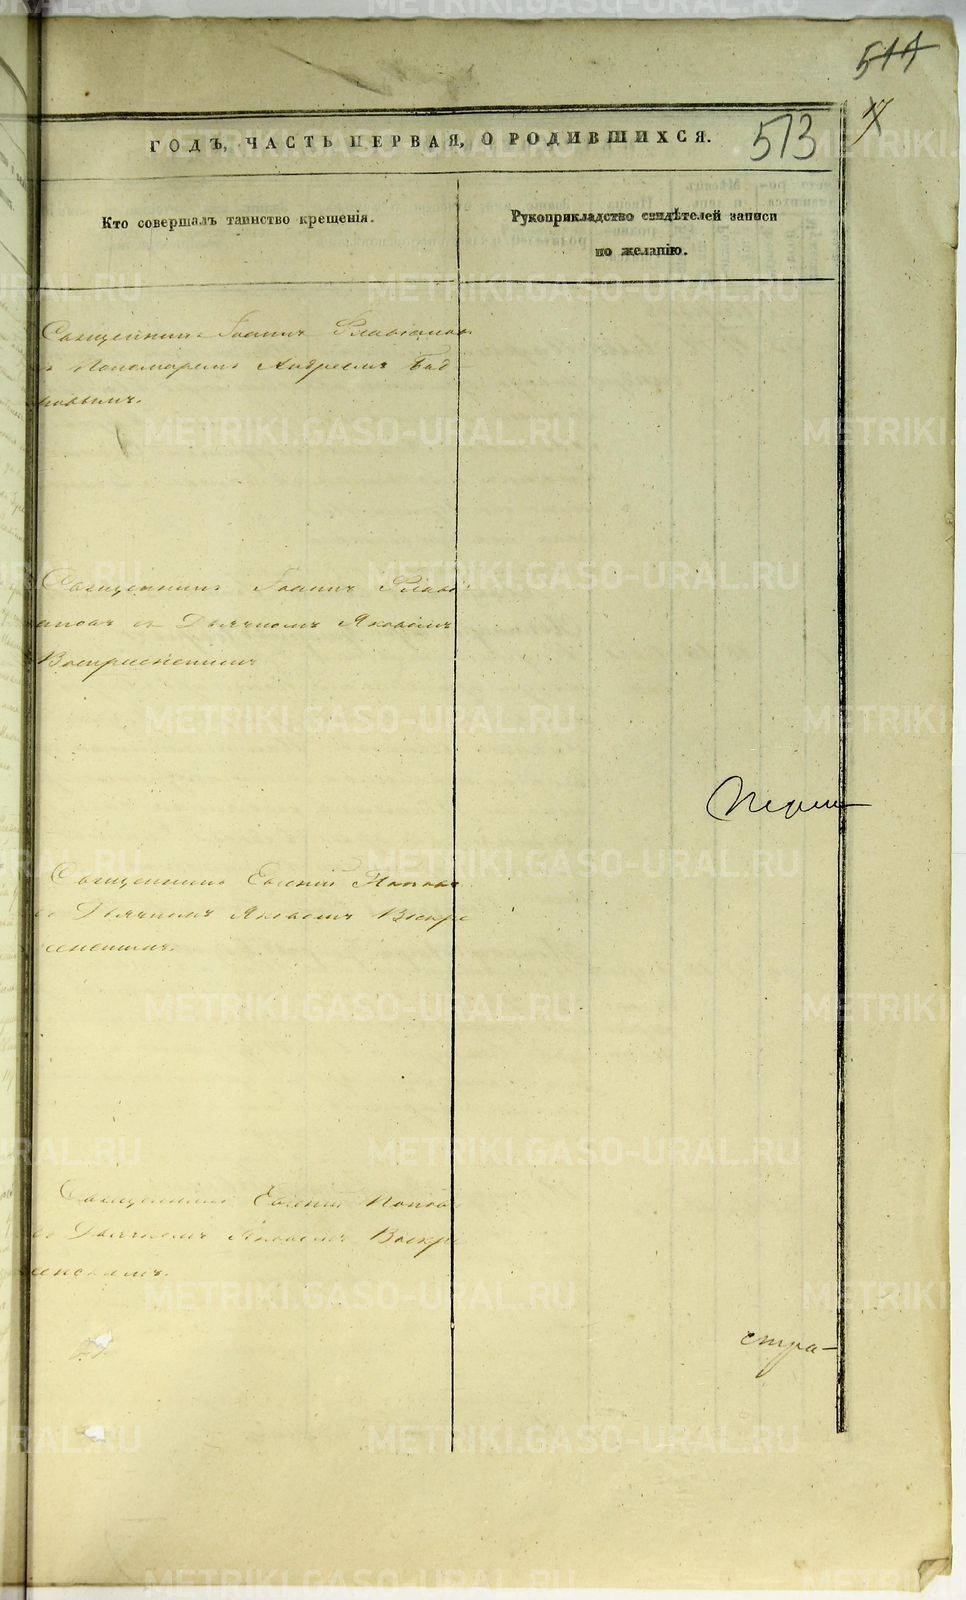 514
513
ГОДЪ, ЧАСТЬ ПЕРВАЯ, О РОДИВШИХСЯ.
Кто совершалъ таинство крещенія.
Рукоприкладство свидѣтелей записи
по желанію.
Священникъ Іоаннъ
Пономаремъ Андреемъ
Священникъ Іоаннъ
съ Дьячкомъ Яковомъ
Воскресенскимъ
Священникъ Евгеній Поповъ
съ Дьячкомъ Яковомъ Воскре
сенскимъ.
Священникъ Евгеній Поповъ
съ Дьячкомъ Яковомъ Воскре
сенскимъ.
стра-
METRIKI.GASO-URAL.RU